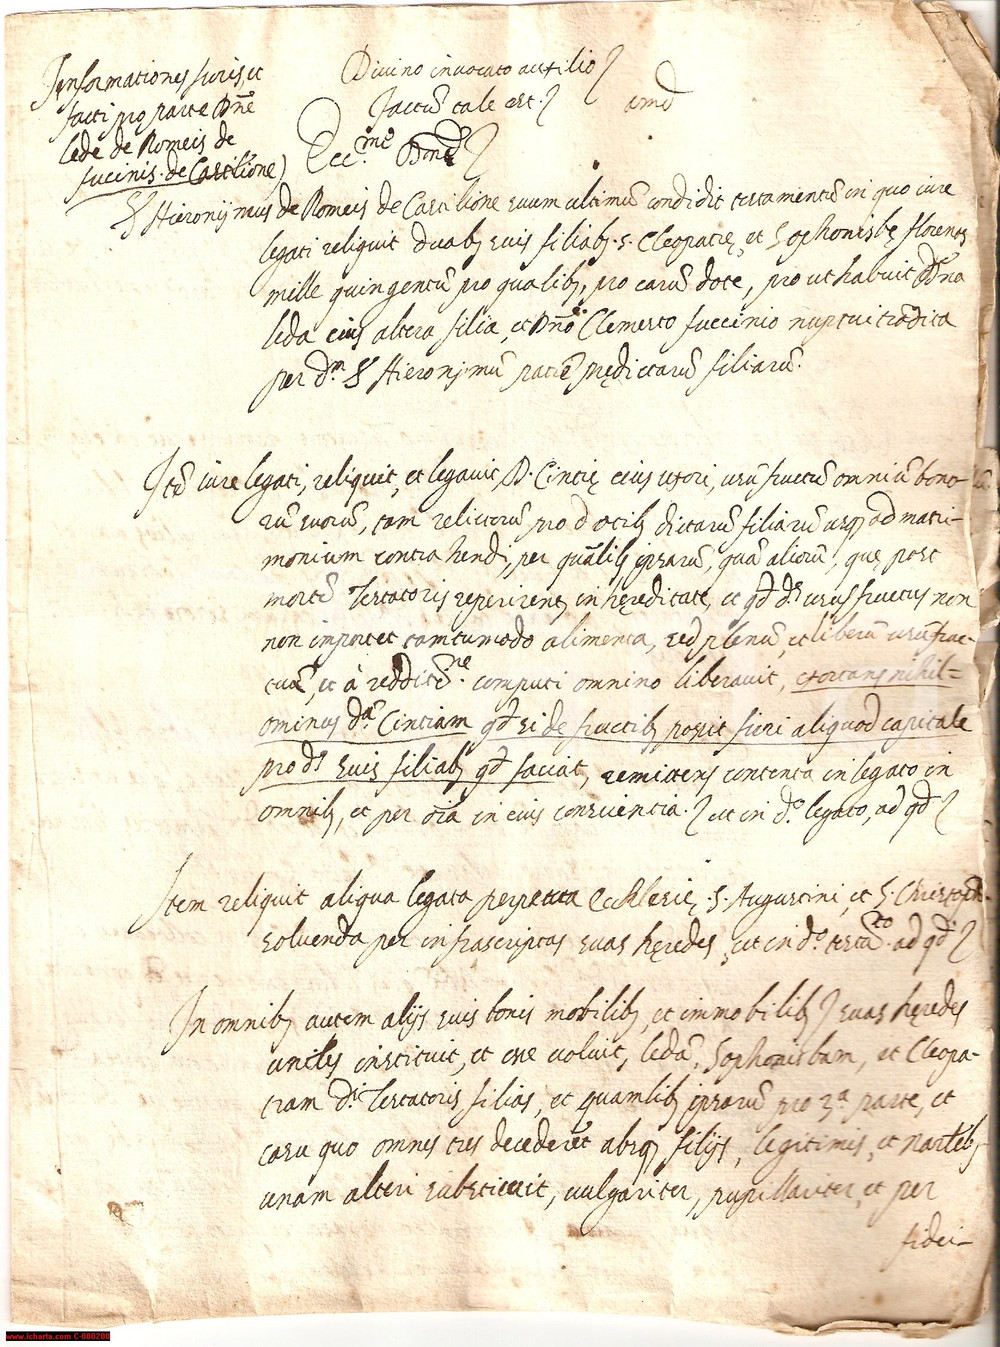 Informationes Juris et
facti pro parte Dñe
Lede de Romeis de
fucinis de Castilione)
Divino invocato auxilio
factũ tale est.
Ecc.me Dñe
Hieronijmus de Romeis de Castilione suum ultimũ condidit testamentũ in quo iure
legati reliquit duab; suis filiab; s. Cleopatrę, et Sophonisbę florenos
mille quingentũ pro qualib; pro earũ dote, pro ut habuit Dña
leda eius altera filia, et Dño Clemerto fuccinio nuptui tradita
per D.m Hieronijmũ patrẽ prędictarũ filiarũ.
Itẽ iure legati, reliquit, et legavit D. Cintię eius uxori, usũfructũ omniũ bono-
rũ suorũ, tam relictorũ pro dotib; dictarũ filiarũ usq; ad matri-
monium contrahendũ, per quãlib; ipsarũ, quã aliorũ, quę post
mortẽ Testatoris reperirent in hęreditate, et qd ds ususfructus non
non importet tamtumodo alimenta, sed plenũ, et liberũ usũfruc-
tũ, et à redditẽ.ne computi omnino liberavit, exortans nihil-
ominus d.ã Cintiam qd si de fructib; possit fieri aliquod capitale
pro ds suis filiab; qd faciat, remittens contenta in legato in
omnib;, et per oĩa in eius conscientia. ut in d.o legato, ad qd
Item reliquit aliqua legata perpetua Ecclesię S. Augustini, et S.
solvenda per infrascriptas suas hęredes, ut in d.o testa.to ad qd
In omnib; autem alijs suis bonis mobilib;, et immobilib; suas hęredes
uniles instituit, et esse voluit, ledã, Sophonisbam, et Cleopa-
tram d.i Testatoris filias, et quamlib; ipsarũ pro 3.a parte, et
casu quo omnes tres decederẽt absq; filijs, legitimis, et natlib;
unam alteri substituit, vulgariter, pupillariter, et per
fidei-
www.icharta.com C-000200